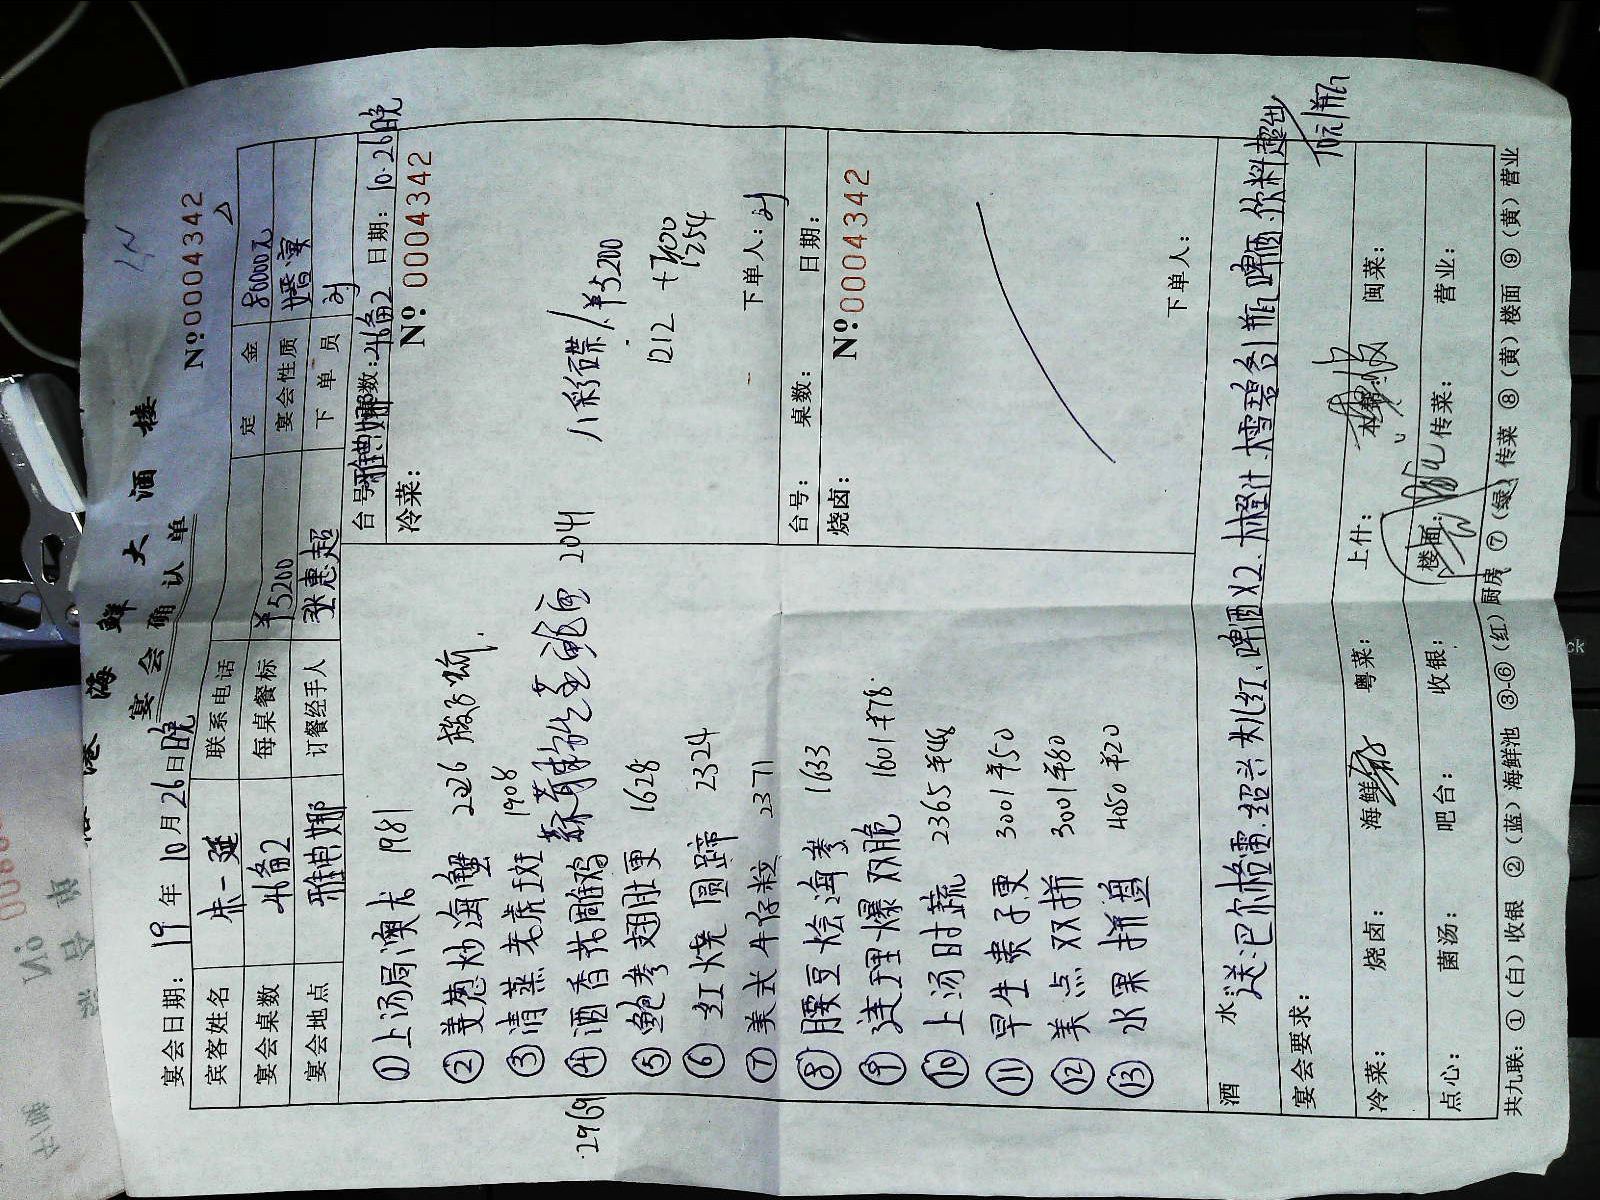 港 海 鲜 大 酒 楼
宴会确认单
宴会日期: 19 年 10 月 26 日晚
№0004342
宾客姓名 朱一延 联系电话 定金 80000元
宴会桌数 46备2 每桌餐标 ¥5200 宴会性质 婚宴
宴会地点 雅典娜 订餐经手人 张惠超 下单员 刘
① 上汤局澳龙 1981
② 姜葱炒海蟹 226
③ 清蒸老虎斑 1908
④ 酒香片雕鸡
2969
⑤ 鲍参翅肚更 1628
⑥ 红烧圆蹄 2324
⑦ 美式牛仔粒 2371
⑧ 腰豆烩海参 1633
⑨ 连理爆双脆 1601 ¥78
⑩ 上汤时蔬 2365 ¥48
⑪ 早生贵子更 3001 ¥50
⑫ 美点双拼 3001 ¥80
⑬ 水果拼盘 4050 ¥20
2041
台号: 雅典娜 桌数: 46备2 日期: 10.26晚
冷菜: №0004342
八彩碟/¥5200
1212 + 7400
1254
下单人: 刘
台号: 桌数: 日期:
烧卤: №0004342
下单人:
酒水: 送:巴尔格雷.绍兴大儿红.啤酒X2.大橙汁.大雪碧各1瓶 啤酒.饮料超出
10元/瓶
宴会要求:
冷菜: 烧卤: 海鲜: 粤菜: 上什: 本帮: 闽菜:
点心: 菌汤: 吧台: 收银: 楼面: 传菜: 营业:
共九联: ①(白)收银 ②(蓝)海鲜池 ③-⑥(红)厨房 ⑦(绿)传菜 ⑧(黄)楼面 ⑨(黄)营业